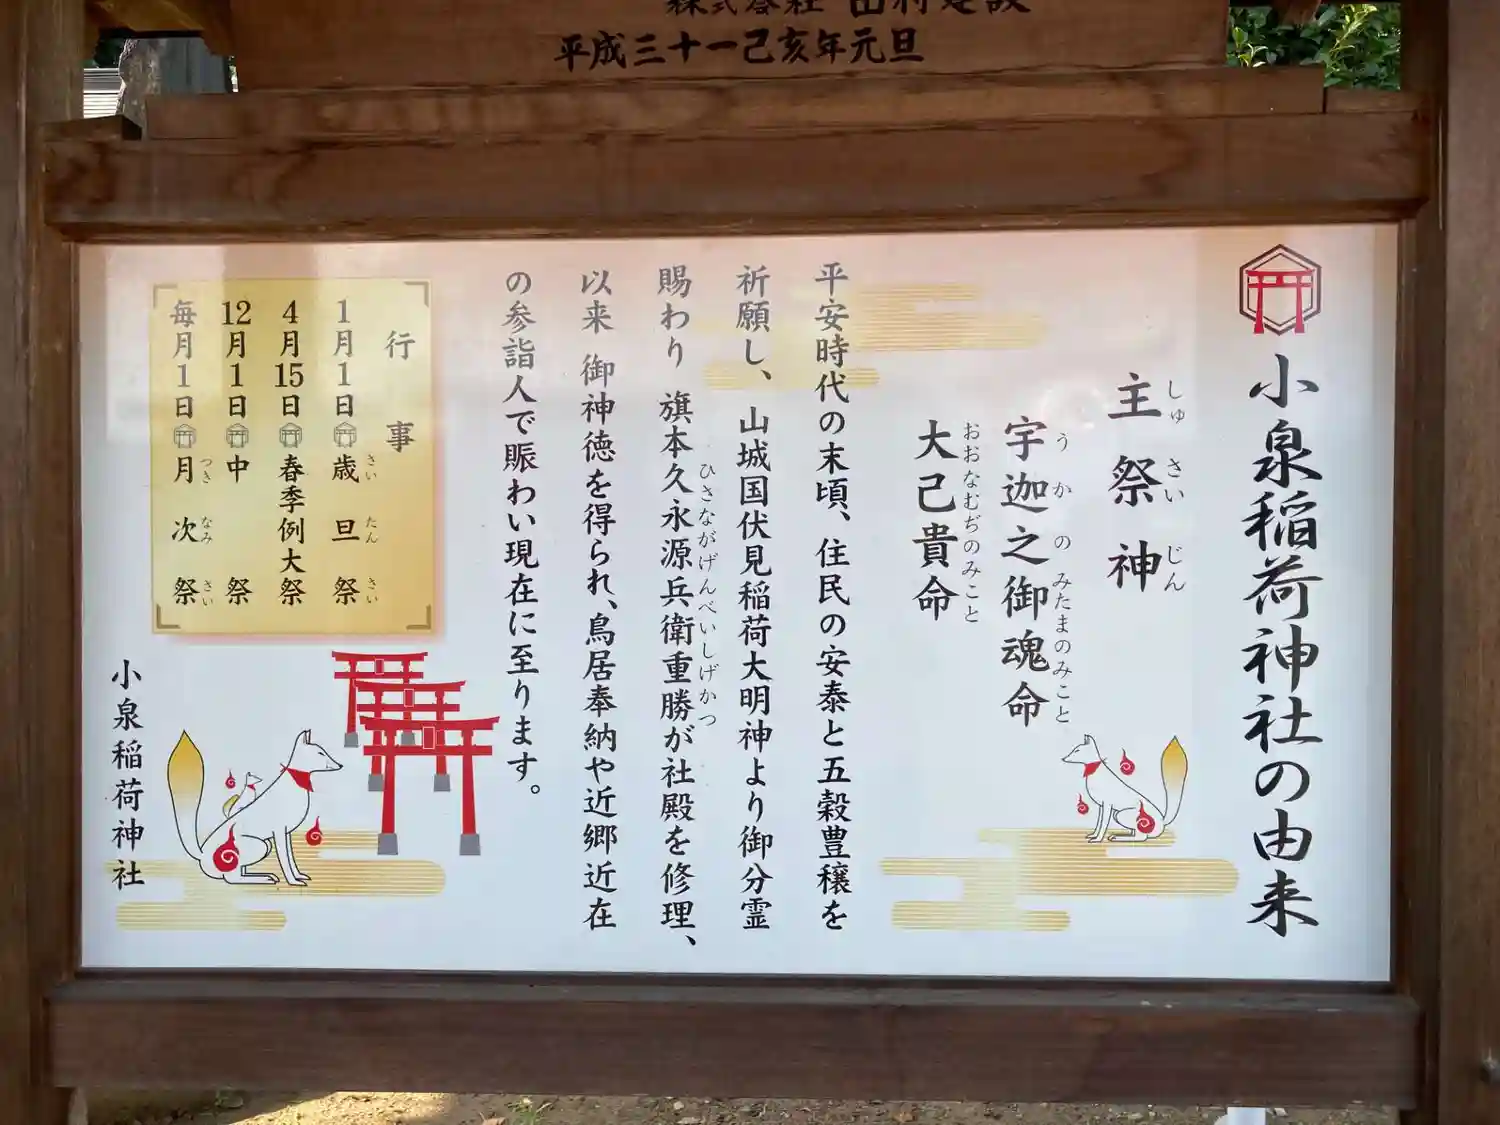 平成三十一己亥年元旦
小泉稲荷神社の由来
主祭神
しゅさいじん
宇迦之御魂命
うかのみたまのみこと
大己貴命
おおなむぢのみこと
平安時代の末頃、住民の安泰と五穀豊穣を
祈願し、山城国伏見稲荷大明神より御分霊
賜わり 旗本久永源兵衛重勝が社殿を修理、
ひさながげんべいしげかつ
以来 御神徳を得られ、鳥居奉納や近郷近在
の参詣人で賑わい現在に至ります。
行事
1月1日 歳旦祭
さいたんさい
4月15日 春季例大祭
12月1日 中祭
毎月1日 月次祭
つきなみさい
小泉稲荷神社